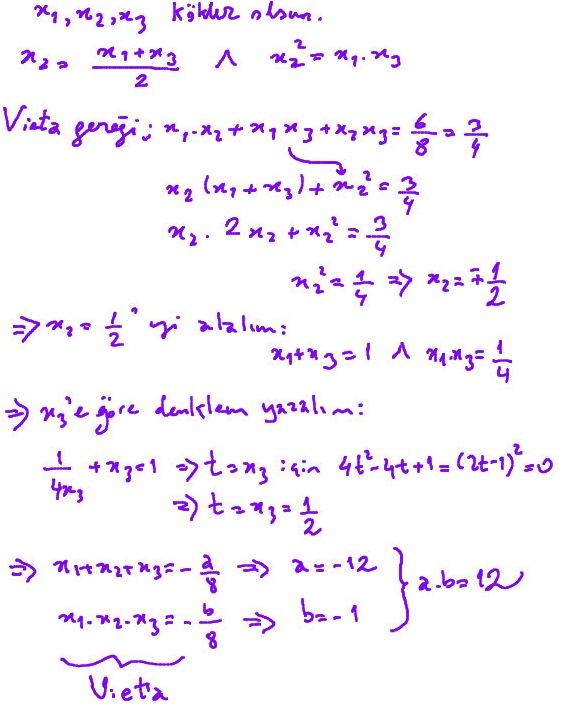 x₁, x₂, x₃ Kökler olsun.
x₂ = (x₁+x₃)/2 ∧ x₂² = x₁·x₃
Vieta gereği; x₁·x₂ + x₁x₃ + x₂x₃ = 6/8 = 3/4
x₂(x₁+x₃) + x₂² = 3/4
x₂·2x₂ + x₂² = 3/4
x₂² = 1/4 ⇒ x₂ = ∓1/2
⇒ x₂ = 1/2 'yi alalım:
x₁+x₃ = 1 ∧ x₁·x₃ = 1/4
⇒ x₃'e göre denklem yazalım:
1/(4x₃) + x₃ = 1 ⇒ t = x₃ için 4t²-4t+1 = (2t-1)² = 0
⇒ t = x₃ = 1/2
⇒ x₁+x₂+x₃ = -a/8 ⇒ a = -12
x₁·x₂·x₃ = -b/8 ⇒ b = -1
} a·b = 12
Vieta